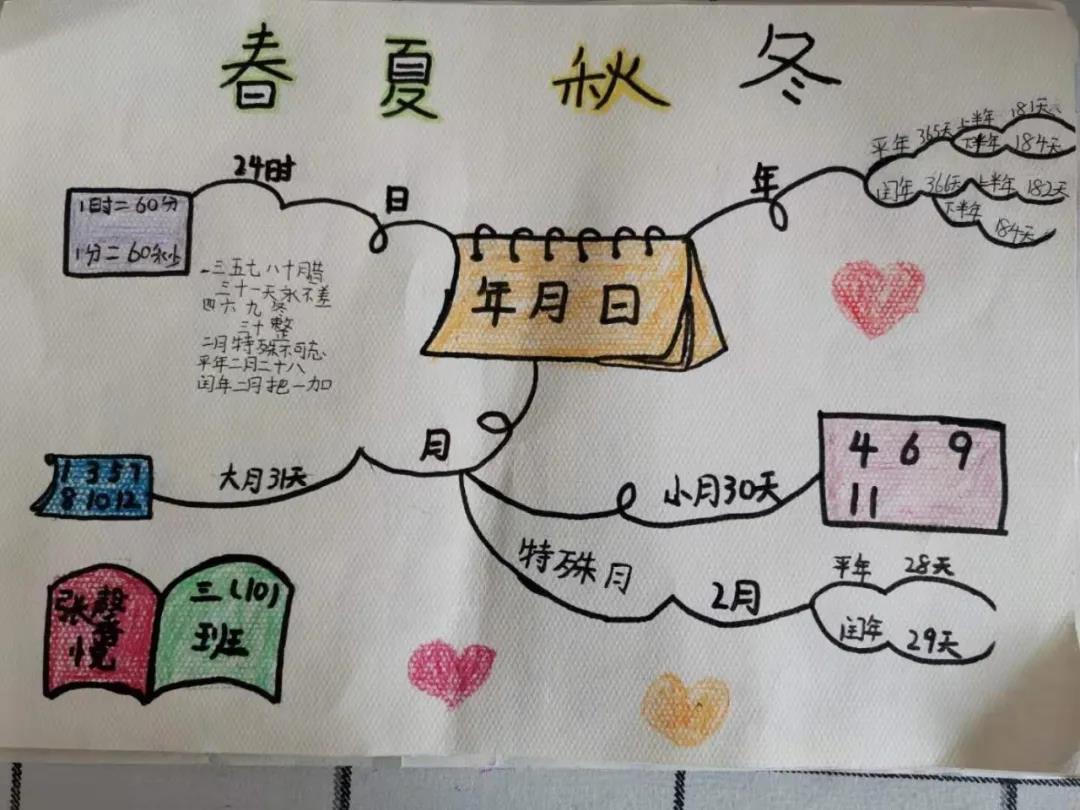 春 夏 秋 冬
24时
日
1时=60分
1分=60秒
年
平年 365天 上半年 181天
下半年 184天
闰年 366天 上半年 182天
下半年
184天
年月日
一三五七八十月腊
三十一天永不差
四六九冬
三十整
二月特殊不可忘
平年二月二十八
闰年二月把一加
月
大月31天
1 3 5 7
8 10 12
小月30天
4 6 9
11
特殊月
2月
平年 28天
闰年 29天
张馨
悦
三(10)
班